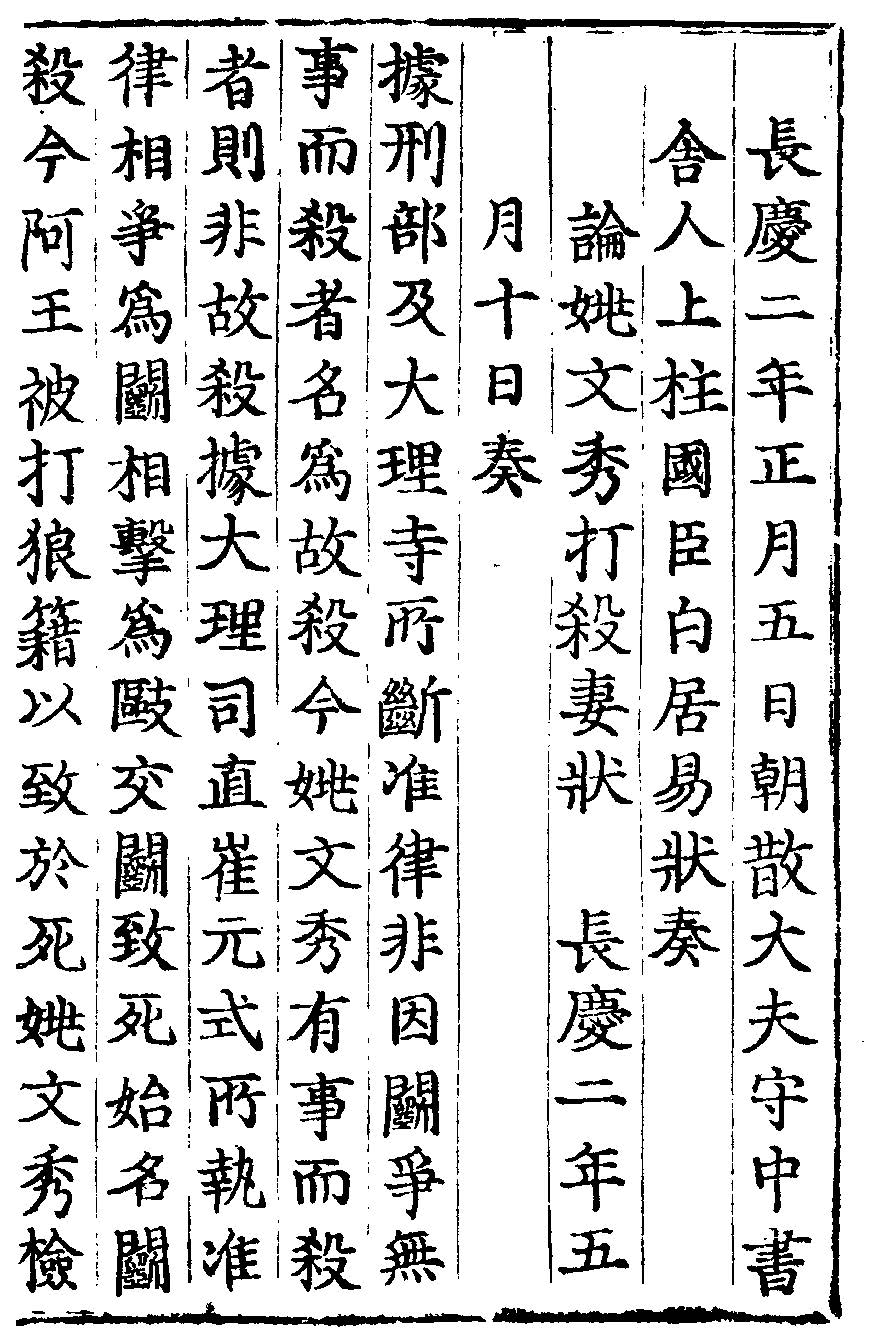 長慶二年正月五日朝散大夫守中書
舎人上柱國臣白居易狀奏
論姚文秀打殺妻狀　長慶二年五
月十日奏
據刑部及大理寺所斷准律非因鬭爭無
事而殺者名爲故殺今姚文秀有事而殺
者則非故殺據大理司直崔元式所執准
律相爭爲鬭相擊爲毆交鬭致死始名鬭
殺今阿王被打狼籍以致於死姚文秀檢